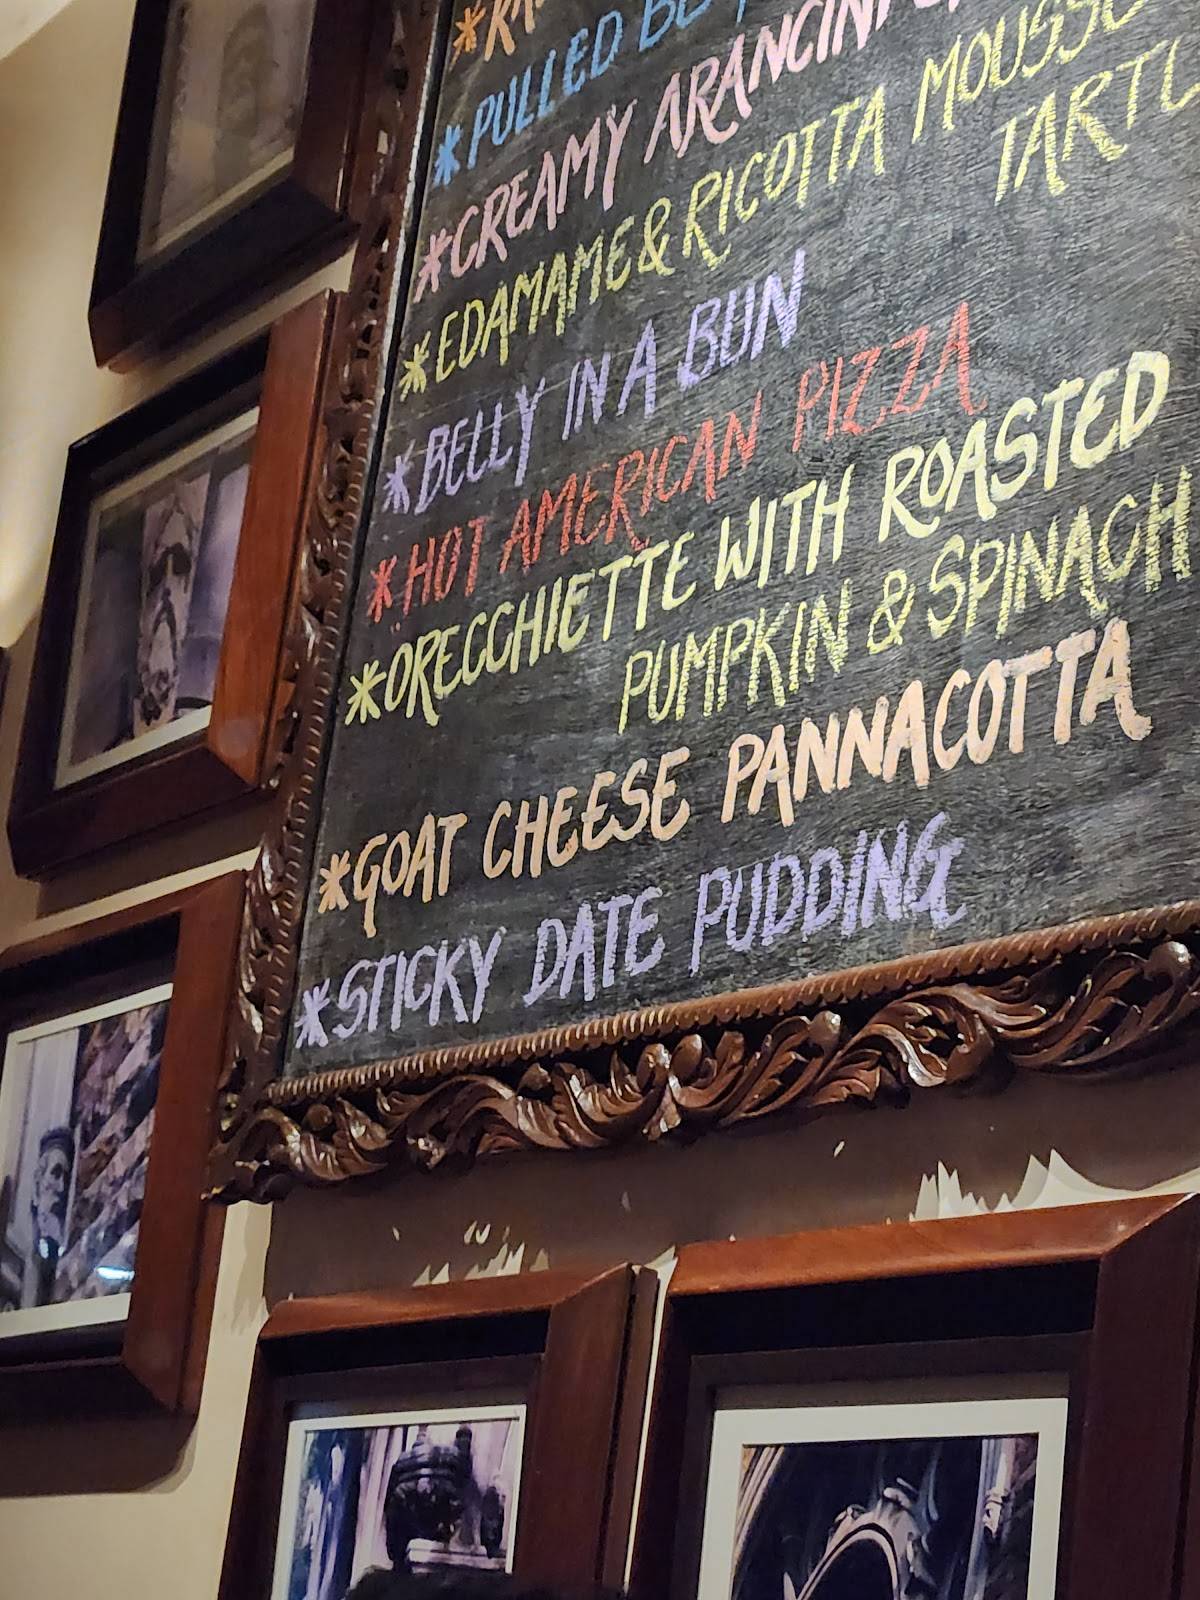 *PULLED
*CREAMY ARANCINI
*EDAMAME & RICOTTA MOUSSE
*BELLY IN A BUN
*HOT AMERICAN PIZZA
*ORECCHIETTE WITH ROASTED
PUMPKIN & SPINACH
*GOAT CHEESE PANNACOTTA
*STICKY DATE PUDDING